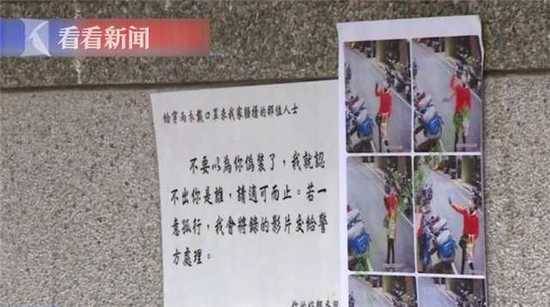 看看新闻
給穿雨衣戴口罩來我家騷擾的那位人士
不要以為你偽裝了，我就認
不出你是誰，請適可而止。若一
意孤行，我會將錄的影片交給警
方處理。